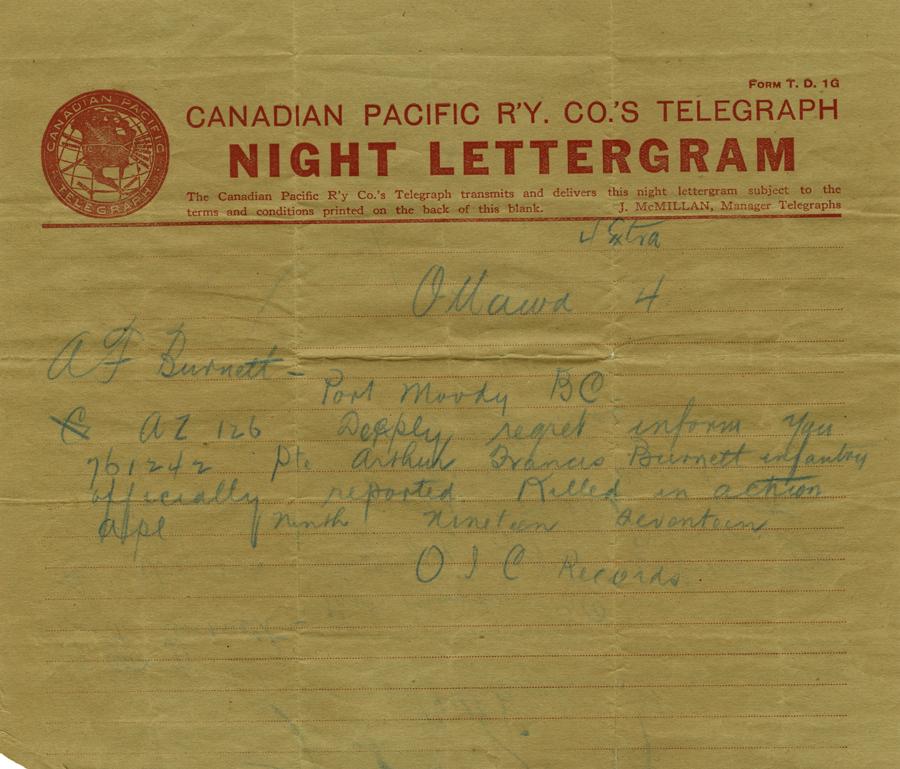 FORM T. D. 1G
CANADIAN PACIFIC TELEGRAPH
CANADIAN PACIFIC R'Y. CO.'S TELEGRAPH
NIGHT LETTERGRAM
The Canadian Pacific R'y Co.'s Telegraph transmits and delivers this night lettergram subject to the
terms and conditions printed on the back of this blank. J. McMILLAN, Manager Telegraphs
Extra
Ottawa 4
A F Burnett -
Port Moody BC
C AZ 126 Deeply regret inform you
761242 Pte Arthur Francis Burnett infantry
officially reported Killed in action
Apl ninth nineteen seventeen
O I C Records